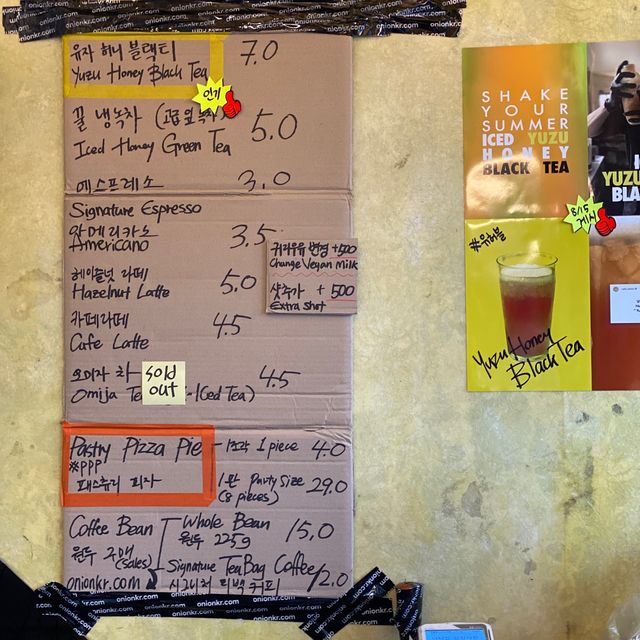 onionkr.com onionkr.com onionkr.com
유자 허니 블랙티
Yuzu Honey Black Tea 7.0
인기
꿀 냉녹차 (고급 잎 녹차)
Iced Honey Green Tea 5.0
에스프레소 3.0
Signature Espresso
아메리카노
Americano 3.5
귀리우유 변경 +500
Change Vegan Milk
샷추가 + 500
Extra Shot
헤이즐넛 라떼 5.0
Hazelnut Latte
카페라떼 4.5
Cafe Latte
오미자 차 4.5
Sold
out
Omija Te (Iced Tea)
Pastry Pizza Pie
※PPP
패스츄리 피자
1조각 1 piece 4.0
1판 Party Size 29.0
(8 pieces)
Coffee Bean
원두 구매
(sales)
onionkr.com
Whole Bean 15.0
원두 225g
Signature TeaBag Coffee 12.0
시그니처 티백 커피
onionkr.com onionkr.com onionkr.com
SHAKE
YOUR
SUMMER
ICED YUZU
HONEY
BLACK TEA
YUZU
BLA
8/15
게시
#유허블
Yuzu Honey
Black Tea